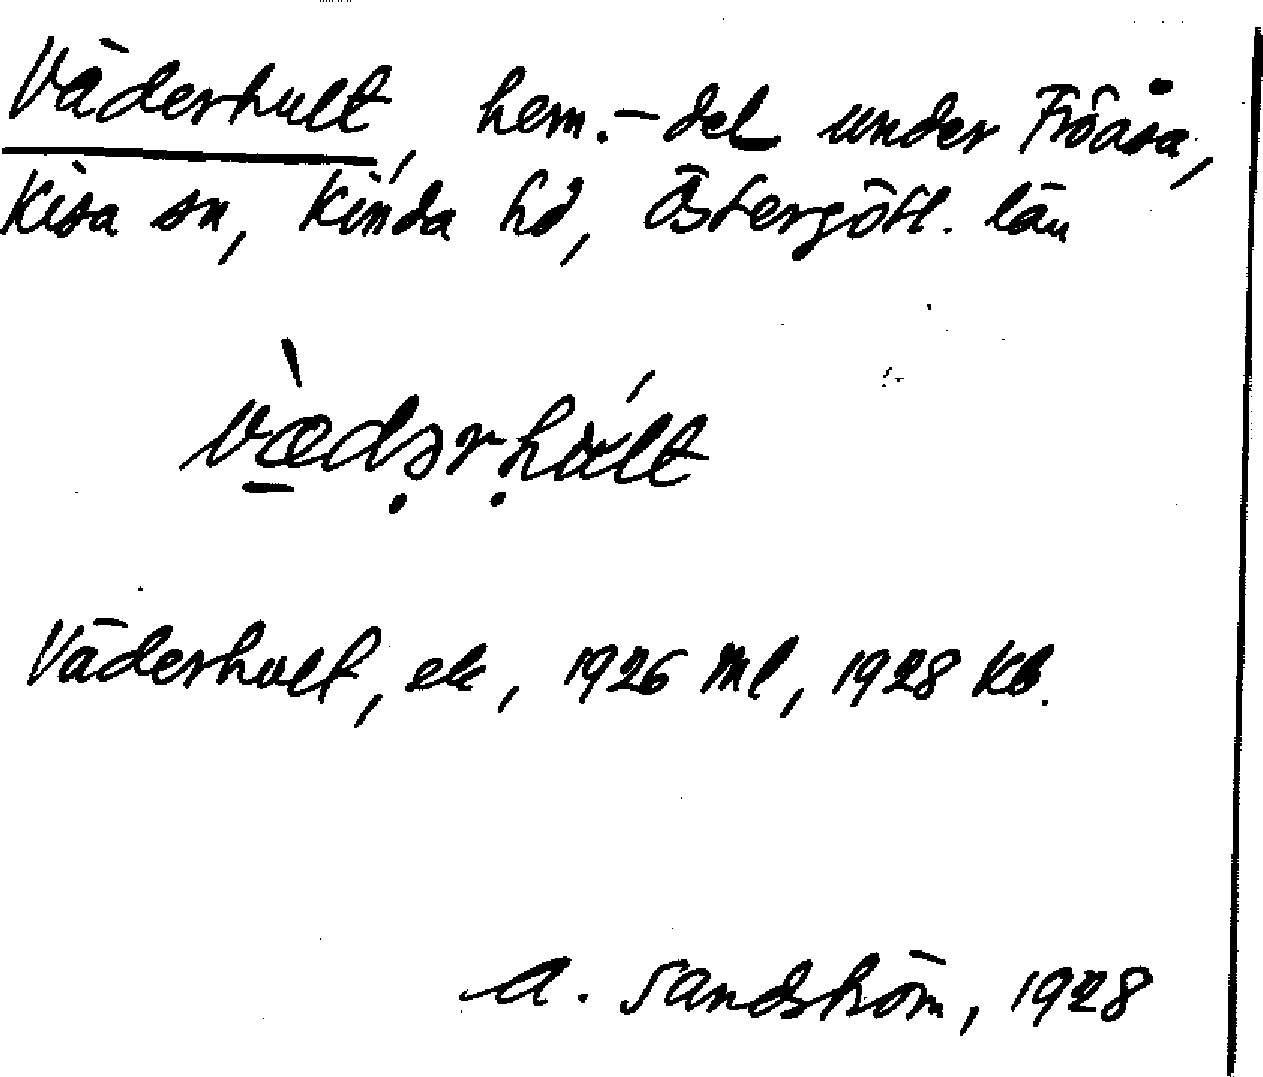 Väderhult, hem.-del under Fröåsa,
Kisa sn, Kinda hd, Östergötl. län
Väderhult, ek, 1926 Ml, 1928 Kb.
A. Sandström, 1928